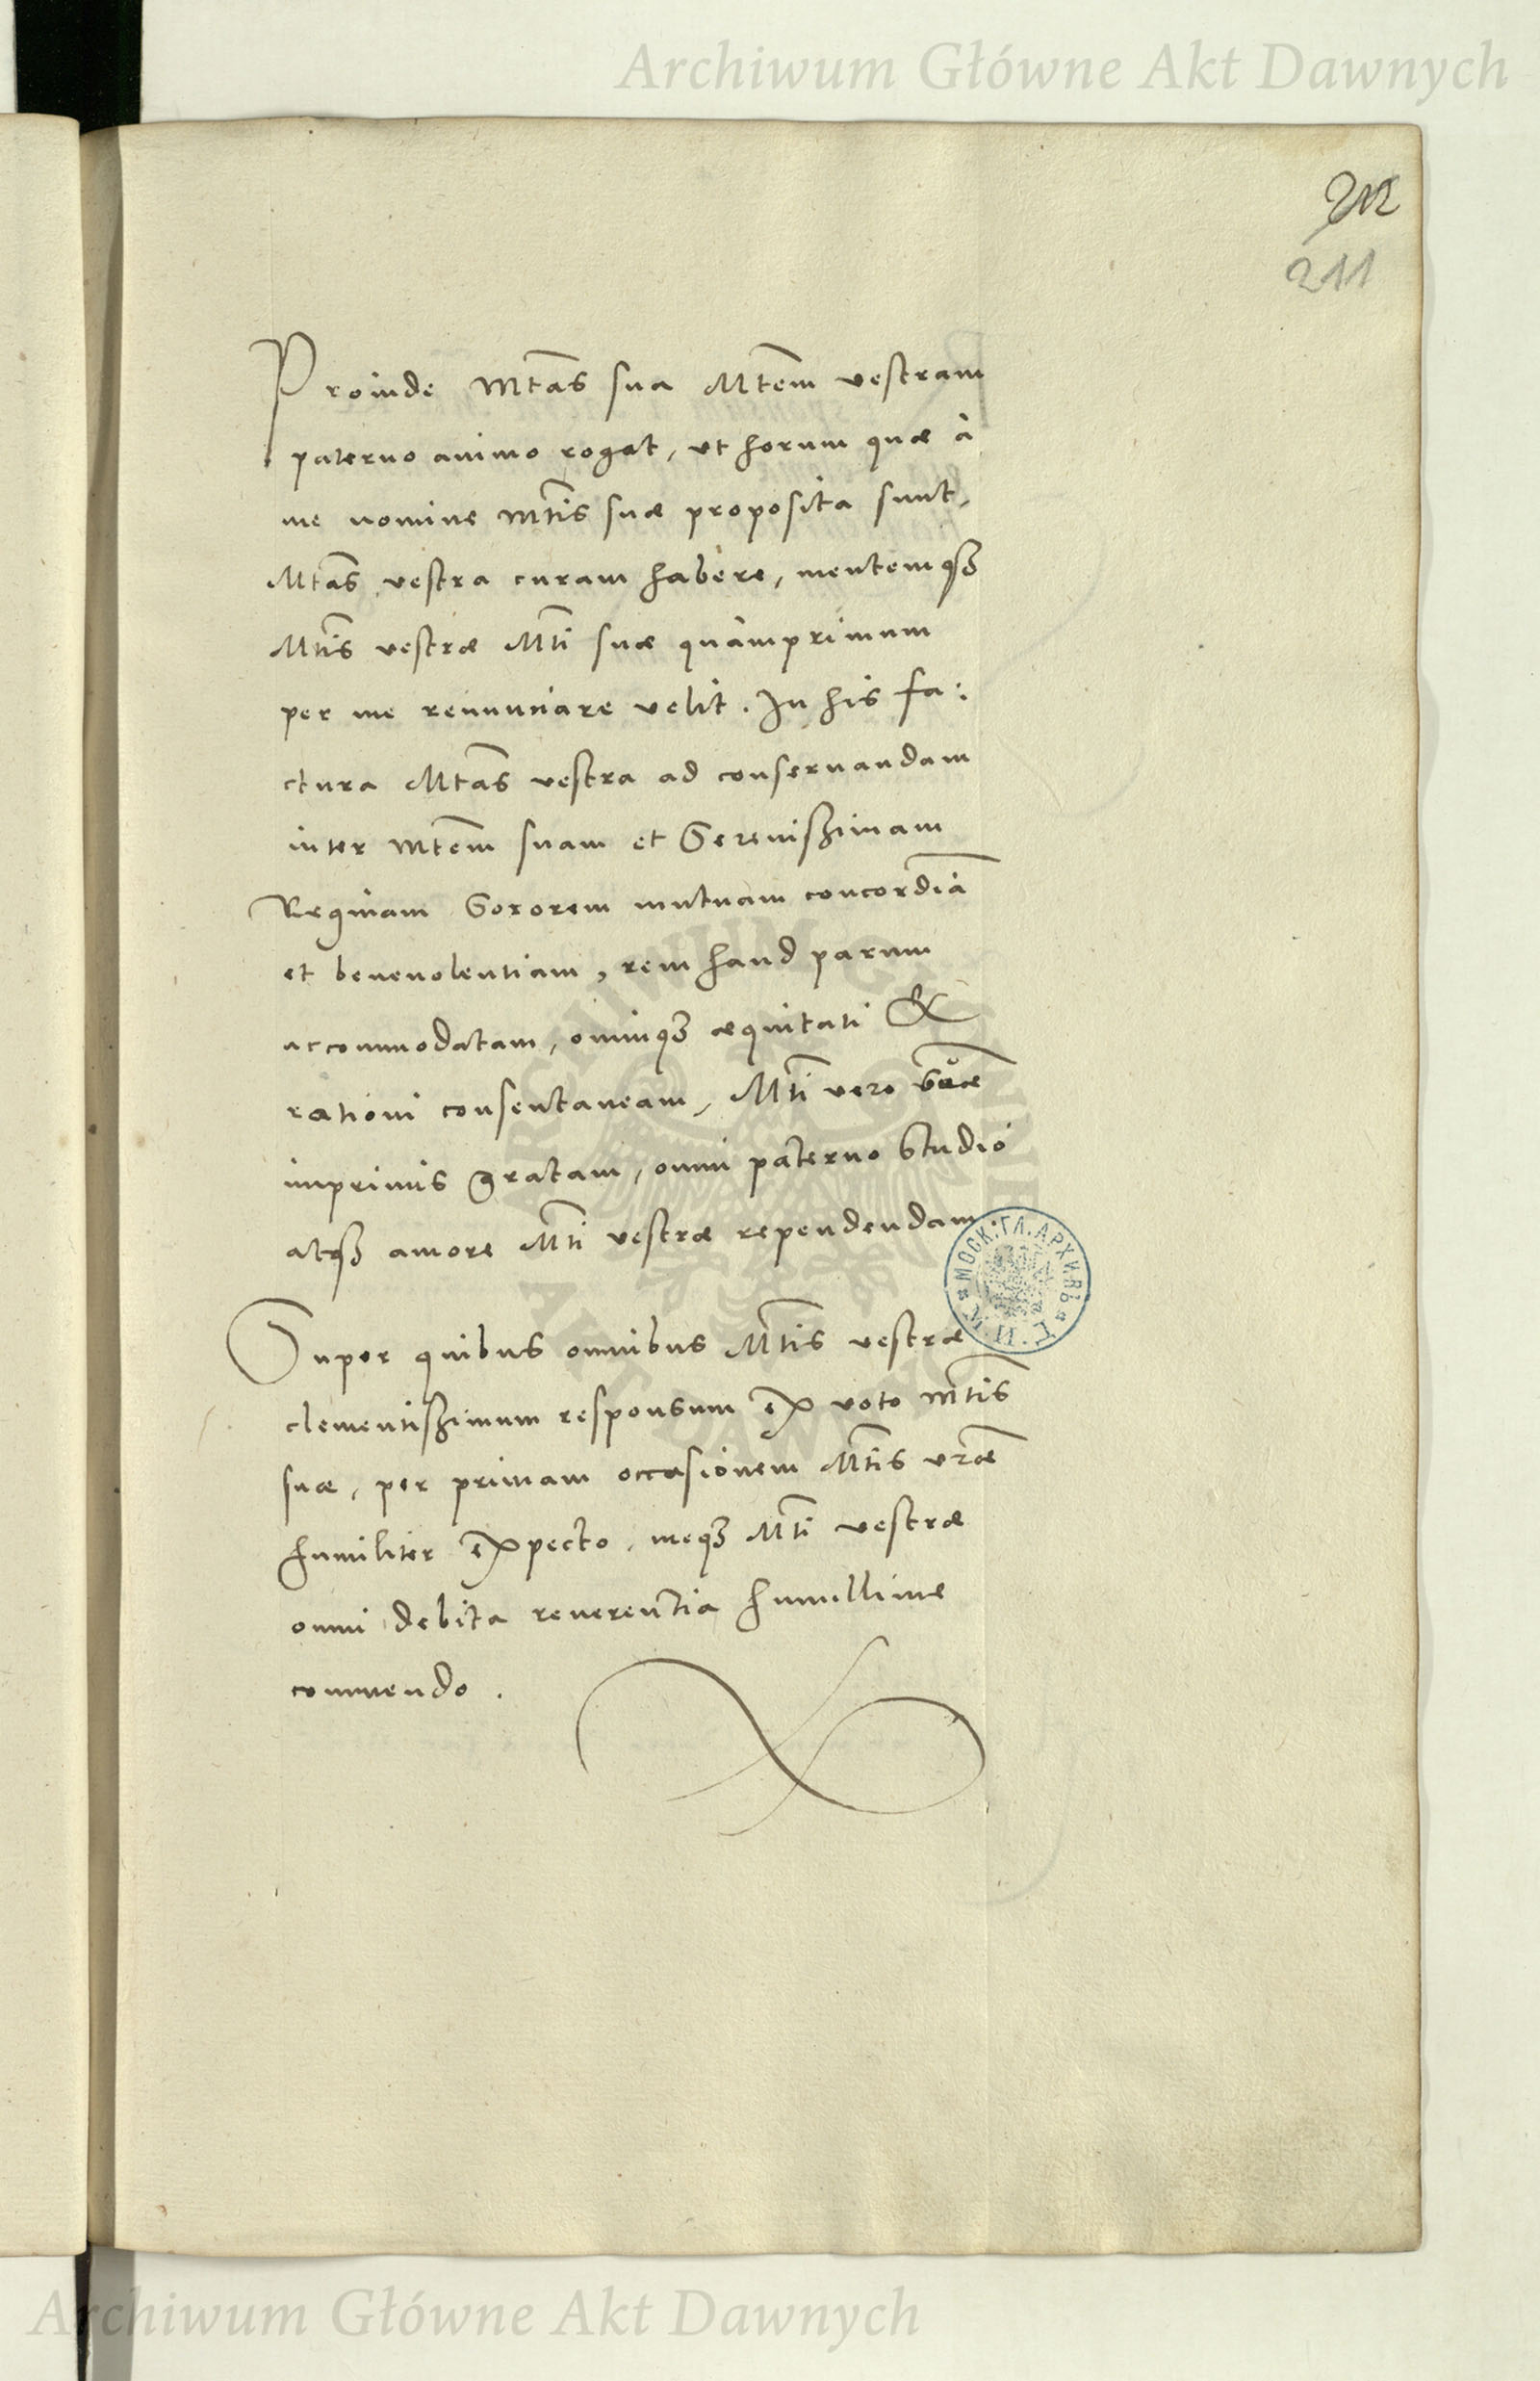 Archiwum Główne Akt Dawnych
212
211
Proinde Mtas sua Mtem vestram
paterno animo rogat, ut horum quæ à
me nomine Mtis suæ proposita sunt,
Mtas vestra curam habere, mentemq3
Mtis vestræ Mti suæ quàmprimum
per me renunciare velit. In his fa:
ctura Mtas vestra ad conseruandam
inter Mtem suam et Serenissimam
Reginam Sororem mutuam concordiā
et beneuolentiam, rem haud parum
accommodatam, omniq3 æquitati &
rationi consentaneam, Mti vero suæ
imprimis gratam, omni paterno studio
atq3 amore Mti vestræ rependendam.
Super quibus omnibus Mtis vestræ
clementissimum responsum ex voto Mtis
suæ, per primam occasionem Mtis vræ
humiliter expecto, meq3 Mti vestræ
omni debita reuerentia humillime
commendo.
МОСК. ГЛ. АРХИВЪ
М. И. Д.
ARCHIWUM GŁÓWNE
AKT DAWNYCH
Archiwum Główne Akt Dawnych